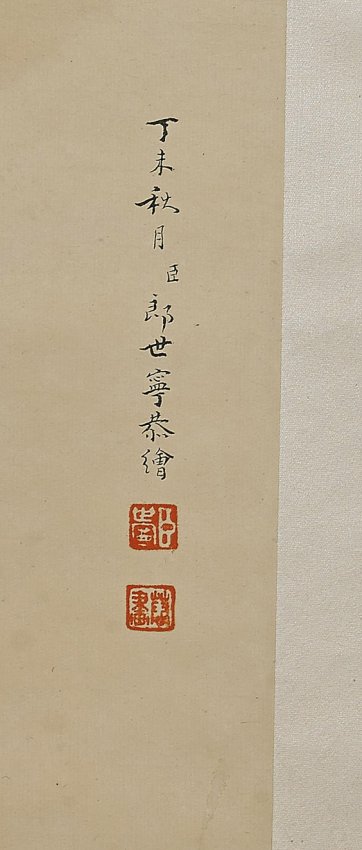 丁未秋月臣郎世寧恭繪
臣世寧
恭畫